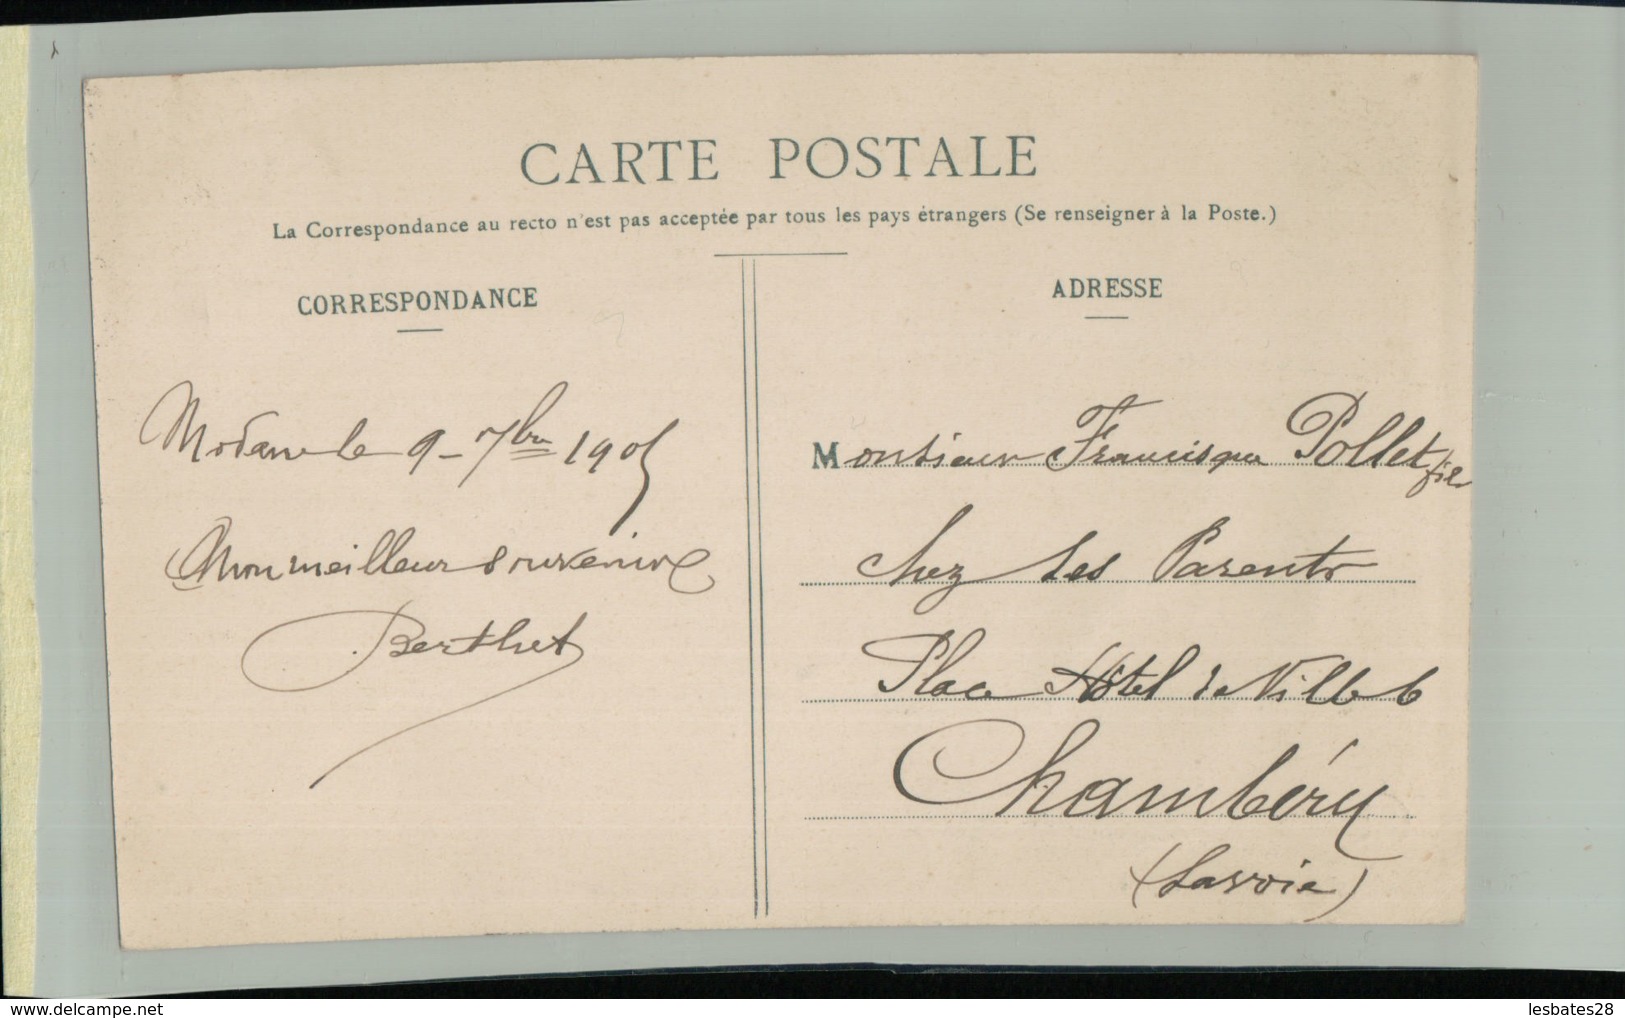 CARTE POSTALE
La Correspondance au recto n'est pas acceptée par tous les pays étrangers (Se renseigner à la Poste.)
CORRESPONDANCE
Modane le 9 - 7bre 1905
Mon meilleur souvenir
Berthet
ADRESSE
Monsieur Francisque Pollet fils
chez ses Parents
Place Hôtel de Ville 6
Chambéry
(Savoie)
lesbates28